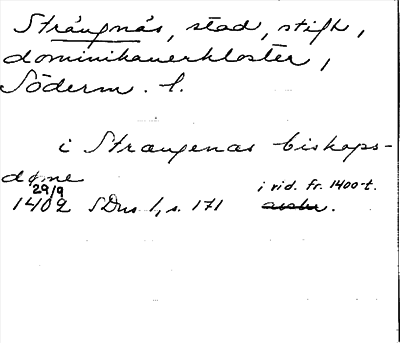 Strängnäs, stad, stift,
dominikanerkloster,
Söderm. l.
i Strangenas biskops-
døme
29/9
1402 SDns 1, s. 171 i vid. fr. 1400-t.